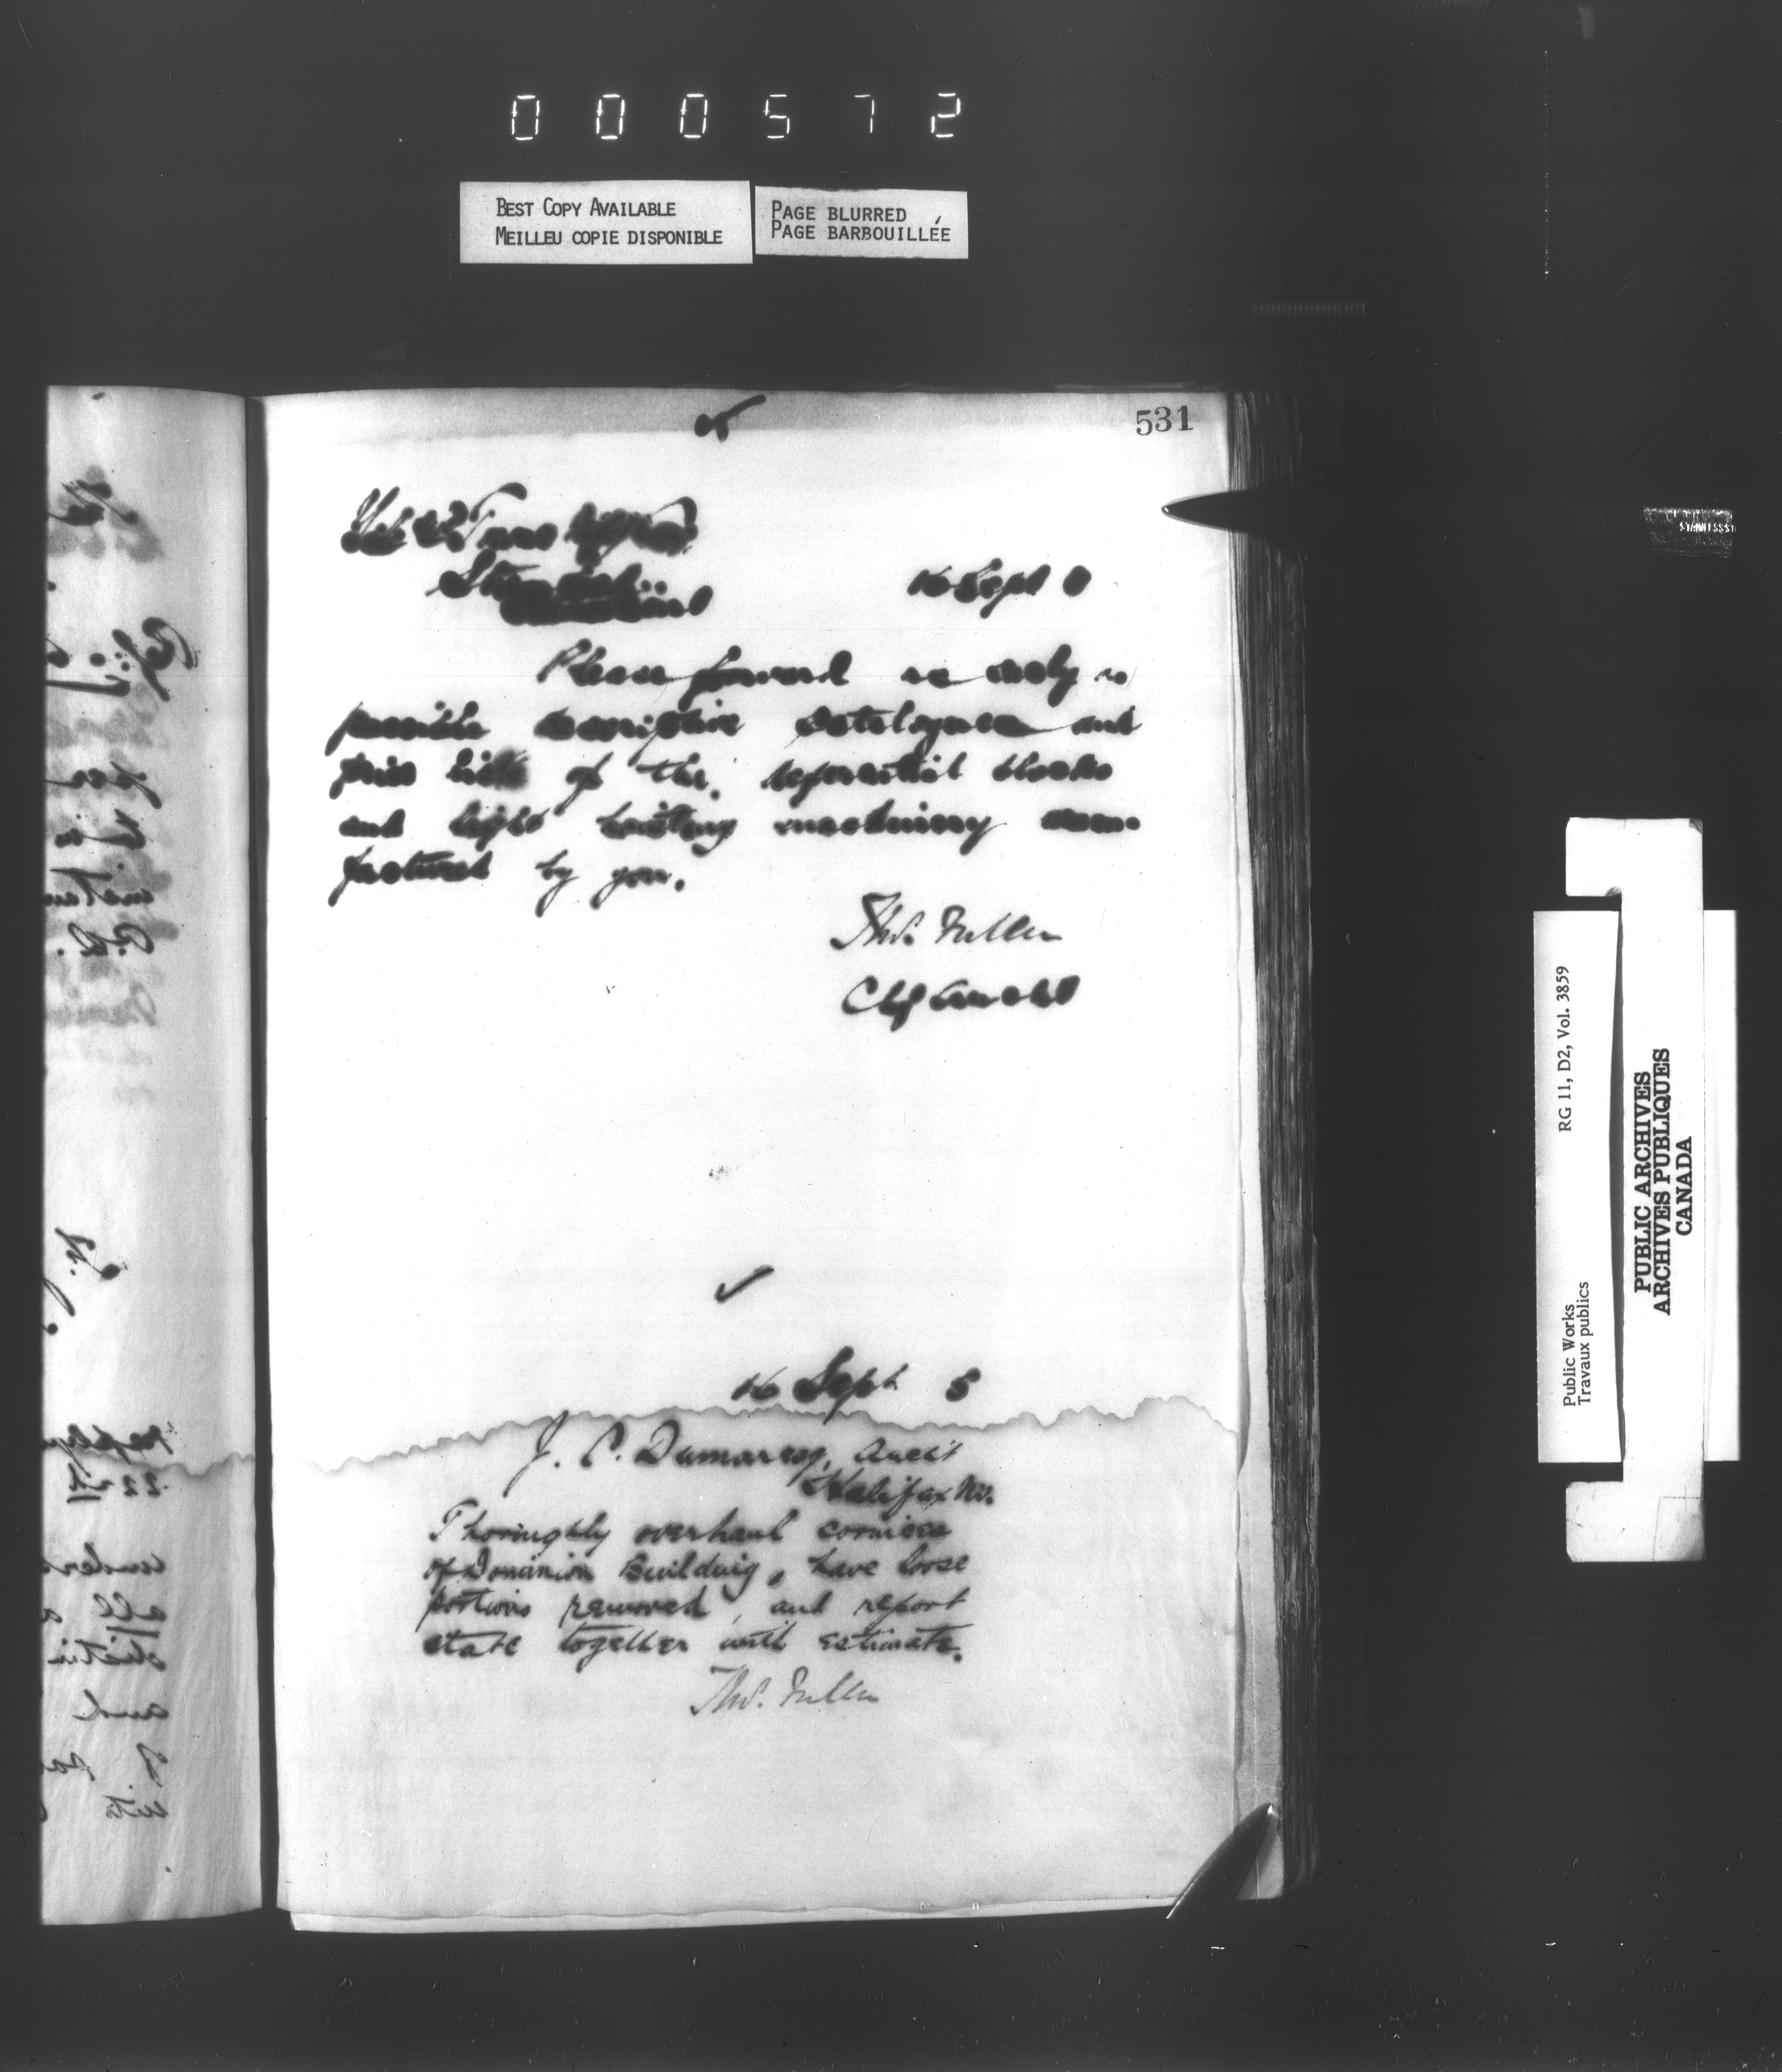 000572
BEST COPY AVAILABLE
MEILLEU COPIE DISPONIBLE
PAGE BLURRED
PAGE BARBOUILLÉE
531
16 Sept
Please forward as early as
possible descriptive catalogues and
price lists of the, differential blocks
and light hoisting machinery manu-
factured by you.
Thos. Fuller
Chf Archt
16 Sept 5
J. C. Dumaresq, Archt
Halifax NS.
Thoroughly overhaul cornices
of Dominion Building, have loose
portions removed, and report
state together with estimate.
Thos. Fuller
STAINLESS ST
RG 11, D2, Vol. 3859
Public Works
Travaux publics
PUBLIC ARCHIVES
ARCHIVES PUBLIQUES
CANADA